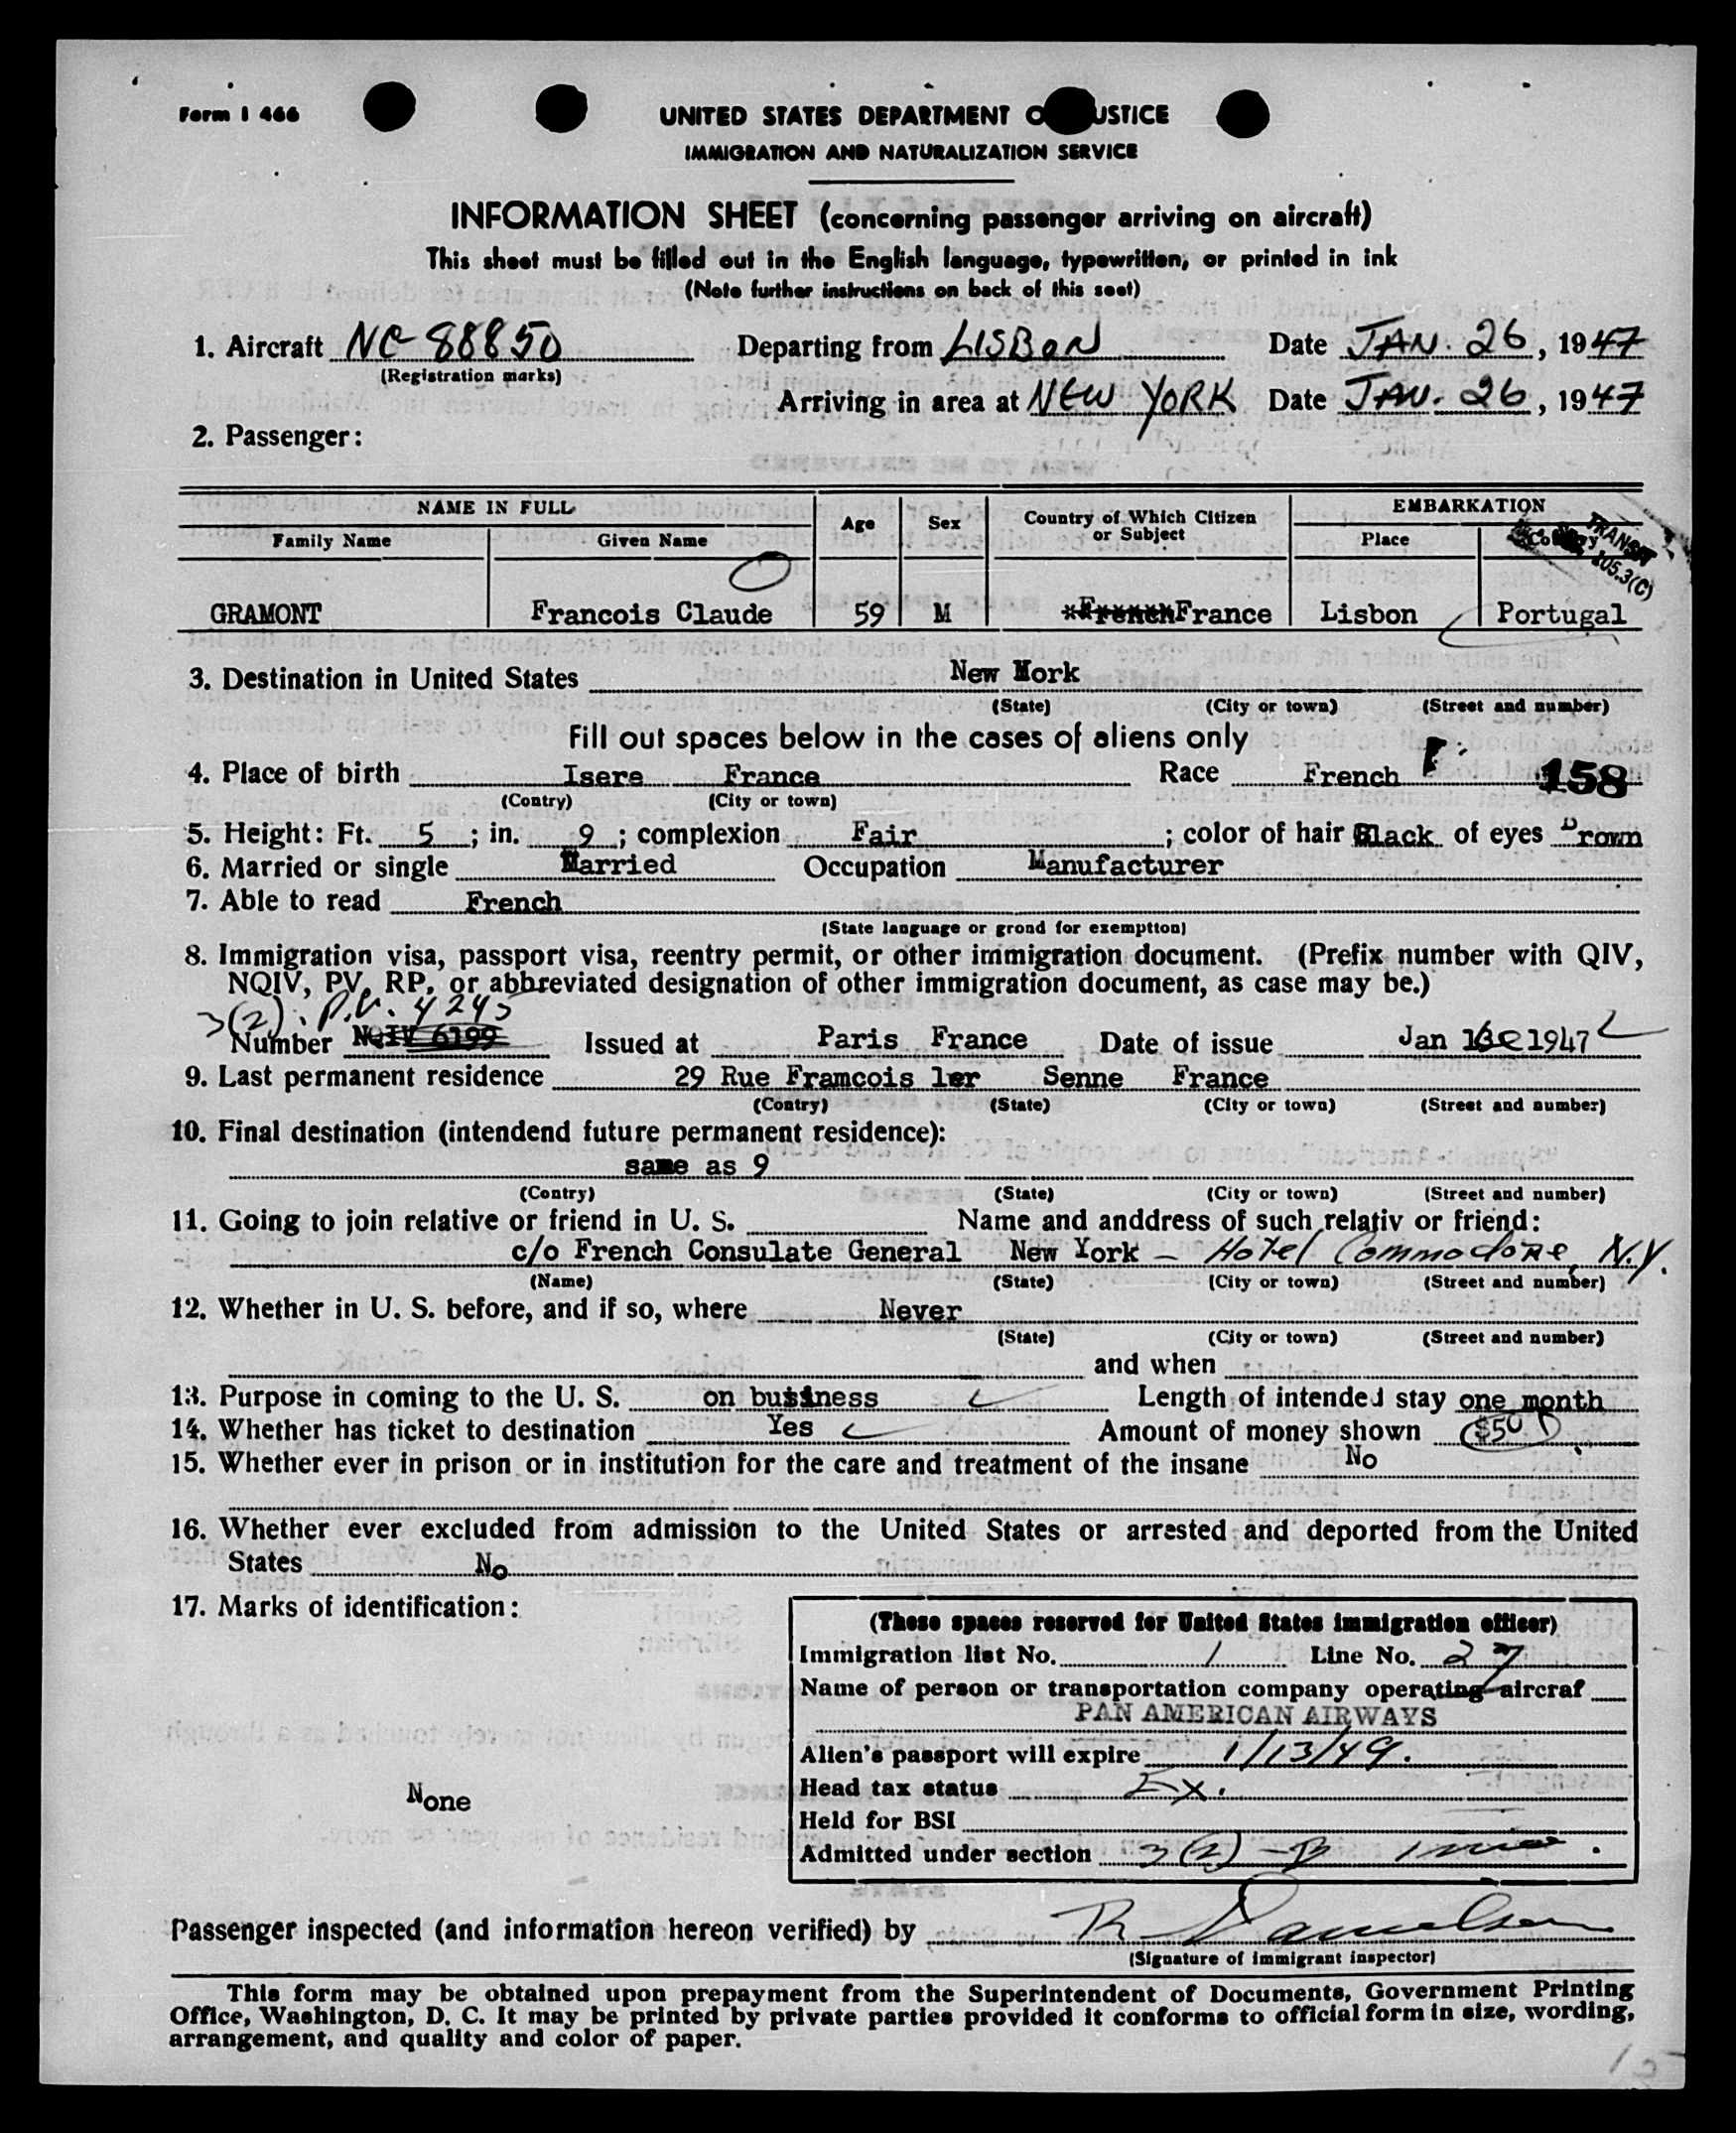 Form I 466
UNITED STATES DEPARTMENT O USTICE
IMMIGRATION AND NATURALIZATION SERVICE
INFORMATION SHEET (concerning passenger arriving on aircraft)
This sheet must be filled out in the English language, typewritten, or printed in ink
(Note further instructions on back of this seet)
1. Aircraft NC-88850 Departing from LISBON Date JAN. 26, 1947
(Registration marks)
Arriving in area at NEW YORK Date JAN. 26, 1947
2. Passenger:
NAME IN FULL Age Sex Country of Which Citizen or Subject EMBARKATION
Family Name Given Name Place
TRANSIT
105.3(C)
GRAMONT Francois Claude 59 M France Lisbon Portugal
3. Destination in United States New York
(State) (City or town) (Street and number)
Fill out spaces below in the cases of aliens only
4. Place of birth Isere France Race French 158
(Contry) (City or town)
5. Height: Ft. 5; in. 9; complexion Fair; color of hair Black of eyes Brown
6. Married or single Married Occupation Manufacturer
7. Able to read French
(State language or grond for exemption)
8. Immigration visa, passport visa, reentry permit, or other immigration document. (Prefix number with QIV,
NQIV, PV, RP, or abbreviated designation of other immigration document, as case may be.)
3(2). P.V. 4245
Number NQIV 6199 Issued at Paris France Date of issue Jan 1947
9. Last permanent residence 29 Rue Framcois 1er Senne France
(Contry) (State) (City or town) (Street and number)
10. Final destination (intendend future permanent residence):
same as 9
(Contry) (State) (City or town) (Street and number)
11. Going to join relative or friend in U. S. Name and anddress of such relativ or friend:
c/o French Consulate General New York - Hotel Commodore, N.Y.
(Name) (State) (City or town) (Street and number)
12. Whether in U. S. before, and if so, where Never
(State) (City or town) (Street and number)
and when
13. Purpose in coming to the U. S. on business Length of intended stay one month
14. Whether has ticket to destination Yes Amount of money shown $50
15. Whether ever in prison or in institution for the care and treatment of the insane No
16. Whether ever excluded from admission to the United States or arrested and deported from the United
States No
17. Marks of identification:
None
(These spaces reserved for United States immigration officer)
Immigration list No. 1 Line No. 27
Name of person or transportation company operating aircraf
PAN AMERICAN AIRWAYS
Alien's passport will expire 1/13/49.
Head tax status Ex.
Held for BSI
Admitted under section 3(2)-B 1
Passenger inspected (and information hereon verified) by R Danielsen
(Signature of immigrant inspector)
This form may be obtained upon prepayment from the Superintendent of Documents, Government Printing
Office, Washington, D. C. It may be printed by private parties provided it conforms to official form in size, wording,
arrangement, and quality and color of paper.
15